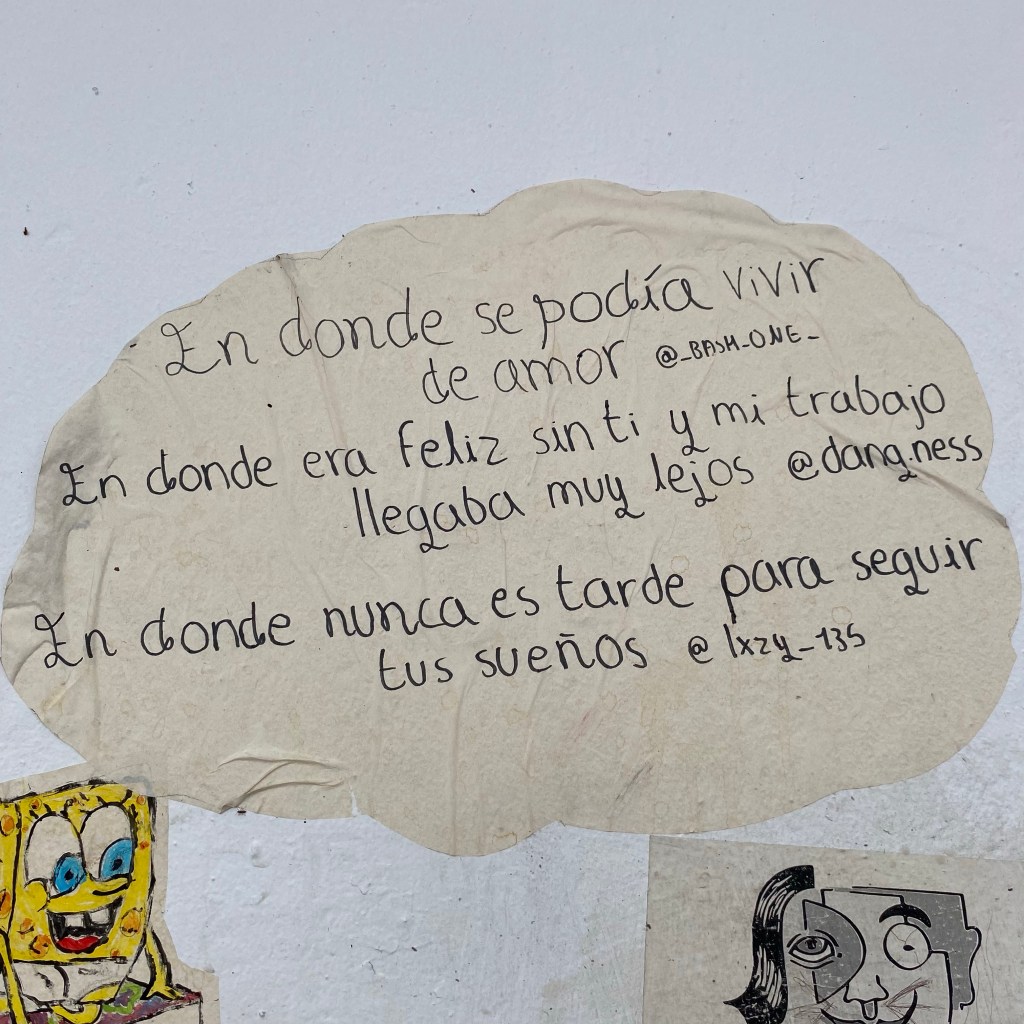 En donde se podía vivir
de amor @_BASH_ONE_
En donde era feliz sin ti y mi trabajo
llegaba muy lejos @dang.ness
En donde nunca es tarde para seguir
tus sueños @lxzy_135